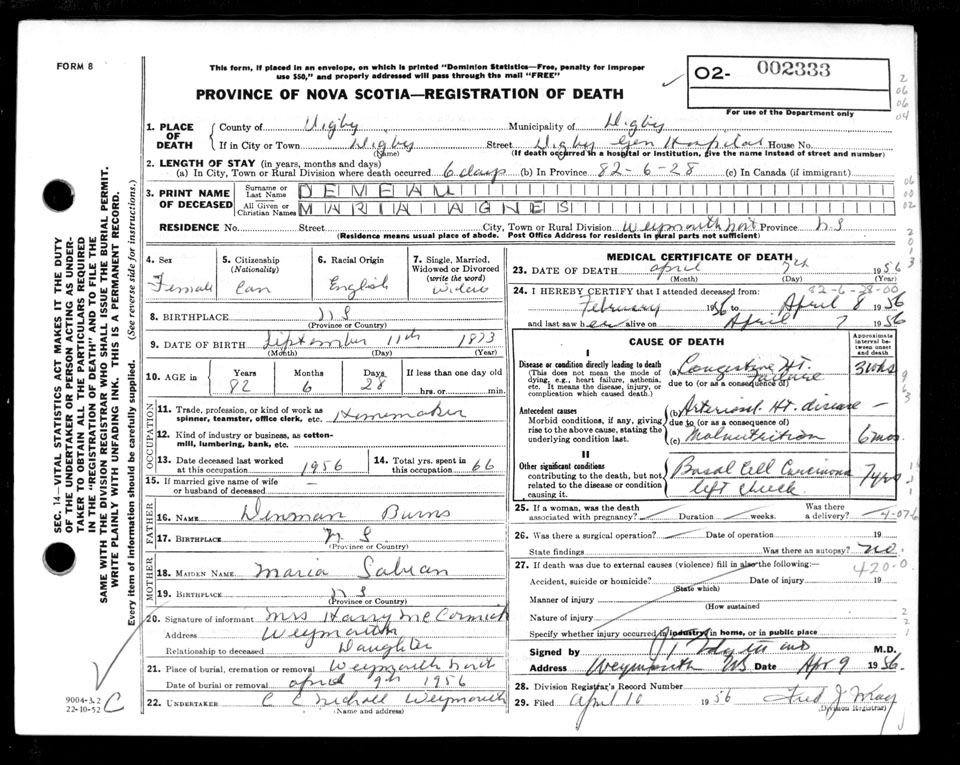 FORM 8
This form, if placed in an envelope, on which is printed "Dominion Statistics—Free, penalty for improper
use $50," and properly addressed will pass through the mail "FREE"
02- 002333
For use of the Department only
PROVINCE OF NOVA SCOTIA—REGISTRATION OF DEATH
SEC. 14—VITAL STATISTICS ACT MAKES IT THE DUTY
OF THE UNDERTAKER OR PERSON ACTING AS UNDER-
TAKER TO OBTAIN ALL THE PARTICULARS REQUIRED
IN THE "REGISTRATION OF DEATH" AND TO FILE THE
SAME WITH THE DIVISION REGISTRAR WHO SHALL ISSUE THE BURIAL PERMIT.
WRITE PLAINLY WITH UNFADING INK. THIS IS A PERMANENT RECORD.
Every item of information should be carefully supplied. (See reverse side for instructions.)
1. PLACE OF DEATH
County of Digby Municipality of Digby
If in City or Town Digby Street Digby Gen Hospital House No.
(Name) (If death occurred in a hospital or institution, give the name instead of street and number)
2. LENGTH OF STAY (in years, months and days)
(a) In City, Town or Rural Division where death occurred 6 days (b) In Province 82-6-28 (c) In Canada (if immigrant)
3. PRINT NAME OF DECEASED
Surname or Last Name DEMEAU
All Given or Christian Names MARIA AGNES
RESIDENCE No. Street City, Town or Rural Division Weymouth North Province N S
(Residence means usual place of abode. Post Office Address for residents in rural parts not sufficient)
4. Sex Female
5. Citizenship (Nationality) Can
6. Racial Origin English
7. Single, Married, Widowed or Divorced (write the word) Widow
8. BIRTHPLACE N S
(Province or Country)
9. DATE OF BIRTH September 11th 1873
(Month) (Day) (Year)
10. AGE in Years 82 Months 6 Days 28 If less than one day old
hrs. or min.
OCCUPATION
11. Trade, profession, or kind of work as spinner, teamster, office clerk, etc. Homemaker
12. Kind of industry or business, as cotton-mill, lumbering, bank, etc.
13. Date deceased last worked at this occupation 1956
14. Total yrs. spent in this occupation 66
15. If married give name of wife or husband of deceased —
FATHER
16. NAME Denman Burns
17. BIRTHPLACE N S
(Province or Country)
MOTHER
18. MAIDEN NAME Maria
19. BIRTHPLACE N S
(Province or Country)
20. Signature of informant Mrs Harry McCormick
Address Weymouth
Relationship to deceased Daughter
21. Place of burial, cremation or removal Weymouth North
Date of burial or removal april 9th 1956
22. UNDERTAKER Weymouth
(Name and address)
9004-3.2
22-10-52
C
MEDICAL CERTIFICATE OF DEATH
23. DATE OF DEATH april 7th 1956
(Month) (Day) (Year)
82-6-28-00
24. I HEREBY CERTIFY that I attended deceased from:
February 1956 to April 8 1956
and last saw her alive on April 7 1956
CAUSE OF DEATH
Approximate interval between onset and death
I
Disease or condition directly leading to death
(This does not mean the mode of dying, e.g., heart failure, asthenia, etc. It means the disease, injury, or complication which caused death.)
Congestive Ht. failure 3 wks
due to (or as a consequence of)
Antecedent causes
Morbid conditions, if any, giving rise to the above cause, stating the underlying condition last.
(b) Arteriosc. Ht. disease —
due to (or as a consequence of)
(c) Malnutrition 6 mos
II
Other significant conditions
contributing to the death, but not related to the disease or condition causing it.
Basal Cell Carcinoma left cheek 7 yrs
25. If a woman, was the death associated with pregnancy? Duration weeks. Was there a delivery?
26. Was there a surgical operation? Date of operation 19
State findings Was there an autopsy? no.
27. If death was due to external causes (violence) fill in also the following:— 420-0
Accident, suicide or homicide? Date of injury 19
(State which)
Manner of injury
(How sustained)
Nature of injury
Specify whether injury occurred in industry, in home, or in public place
Signed by M.D.
Address Weymouth NS Date Apr 9 1956.
28. Division Registrar's Record Number
29. Filed April 10 1956 Fred J May
(Division Registrar)